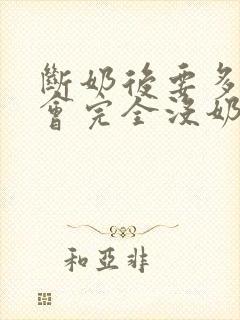 斷奶後要多
會完全沒奶
和亞非